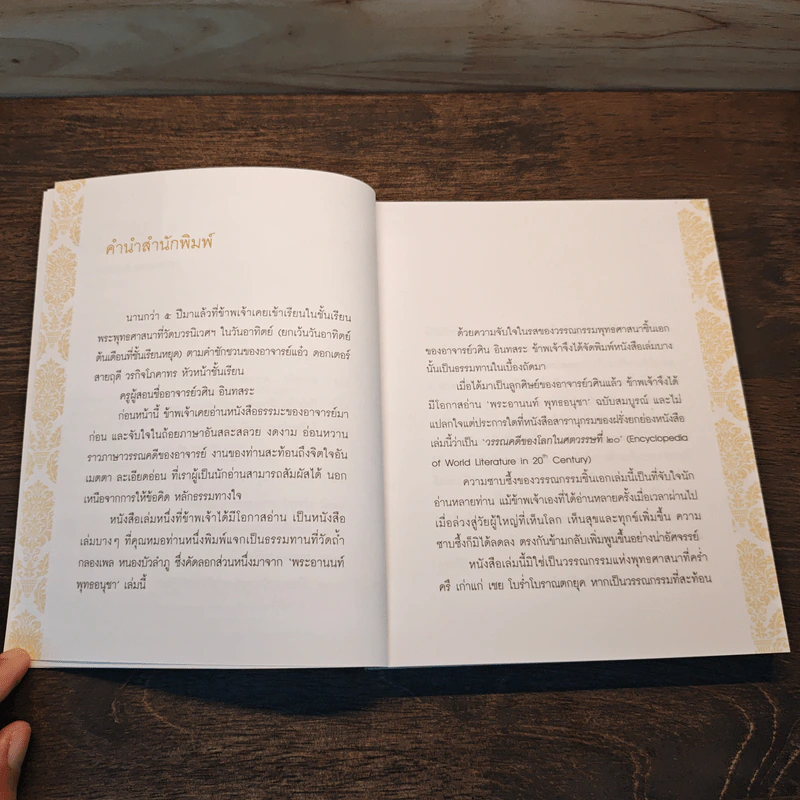 คำนำสำนักพิมพ์
นานกว่า ๕ ปีมาแล้วที่ข้าพเจ้าเคยเข้าเรียนในชั้นเรียน
พระพุทธศาสนาที่วัดบวรนิเวศฯ ในวันอาทิตย์ (ยกเว้นวันอาทิตย์
ต้นเดือนที่ชั้นเรียนหยุด) ตามคำชักชวนของอาจารย์แอ๋ว ดอกเตอร์
สายฤดี วรกิจโภคาทร หัวหน้าชั้นเรียน
ครูผู้สอนชื่ออาจารย์วศิน อินทสระ
ก่อนหน้านี้ ข้าพเจ้าเคยอ่านหนังสือธรรมะของอาจารย์มา
ก่อน และจับใจในถ้อยภาษาอันสละสลวย งดงาม อ่อนหวาน
ราวภาษาวรรณคดีของอาจารย์ งานของท่านสะท้อนถึงจิตใจอัน
เมตตา ละเอียดอ่อน ที่เราผู้เป็นนักอ่านสามารถสัมผัสได้ นอก
เหนือจากการให้ข้อคิด หลักธรรมทางใจ
หนังสือเล่มหนึ่งที่ข้าพเจ้าได้มีโอกาสอ่าน เป็นหนังสือ
เล่มบางๆ ที่คุณหมอท่านหนึ่งพิมพ์แจกเป็นธรรมทานที่วัดถ้ำ
กลองเพล หนองบัวลำภู ซึ่งคัดลอกส่วนหนึ่งมาจาก ‘พระอานนท์
พุทธอนุชา’ เล่มนี้
ด้วยความจับใจในรสของวรรณกรรมพุทธศาสนาชิ้นเอก
ของอาจารย์วศิน อินทสระ ข้าพเจ้าจึงได้จัดพิมพ์หนังสือเล่มบาง
นั้นเป็นธรรมทานในเบื้องถัดมา
เมื่อได้มาเป็นลูกศิษย์ของอาจารย์วศินแล้ว ข้าพเจ้าจึงได้
มีโอกาสอ่าน ‘พระอานนท์ พุทธอนุชา’ ฉบับสมบูรณ์ และไม่
แปลกใจแต่ประการใดที่หนังสือสารานุกรมของฝรั่งยกย่องหนังสือ
เล่มนี้ว่าเป็น ‘วรรณคดีของโลกในศตวรรษที่ ๒๐’ (Encyclopedia
of World Literature in 20th Century)
ความซาบซึ้งของวรรณกรรมชิ้นเอกเล่มนี้เป็นที่จับใจนัก
อ่านหลายท่าน แม้ข้าพเจ้าเองที่ได้อ่านหลายครั้งเมื่อเวลาผ่านไป
เมื่อล่วงสู่วัยผู้ใหญ่ที่เห็นโลก เห็นสุขและทุกข์เพิ่มขึ้น ความ
ซาบซึ้งก็มิได้ลดลง ตรงกันข้ามกลับเพิ่มพูนขึ้นอย่างน่าอัศจรรย์
หนังสือเล่มนี้มิใช่เป็นวรรณกรรมแห่งพุทธศาสนาที่คร่ำ
ครึ เก่าแก่ เชย โบร่ำโบราณตกยุค หากเป็นวรรณกรรมที่สะท้อน